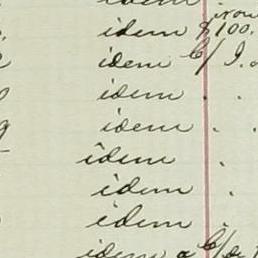 idem
idem $100.
idem
idem
idem
idem
idem
idem
idem